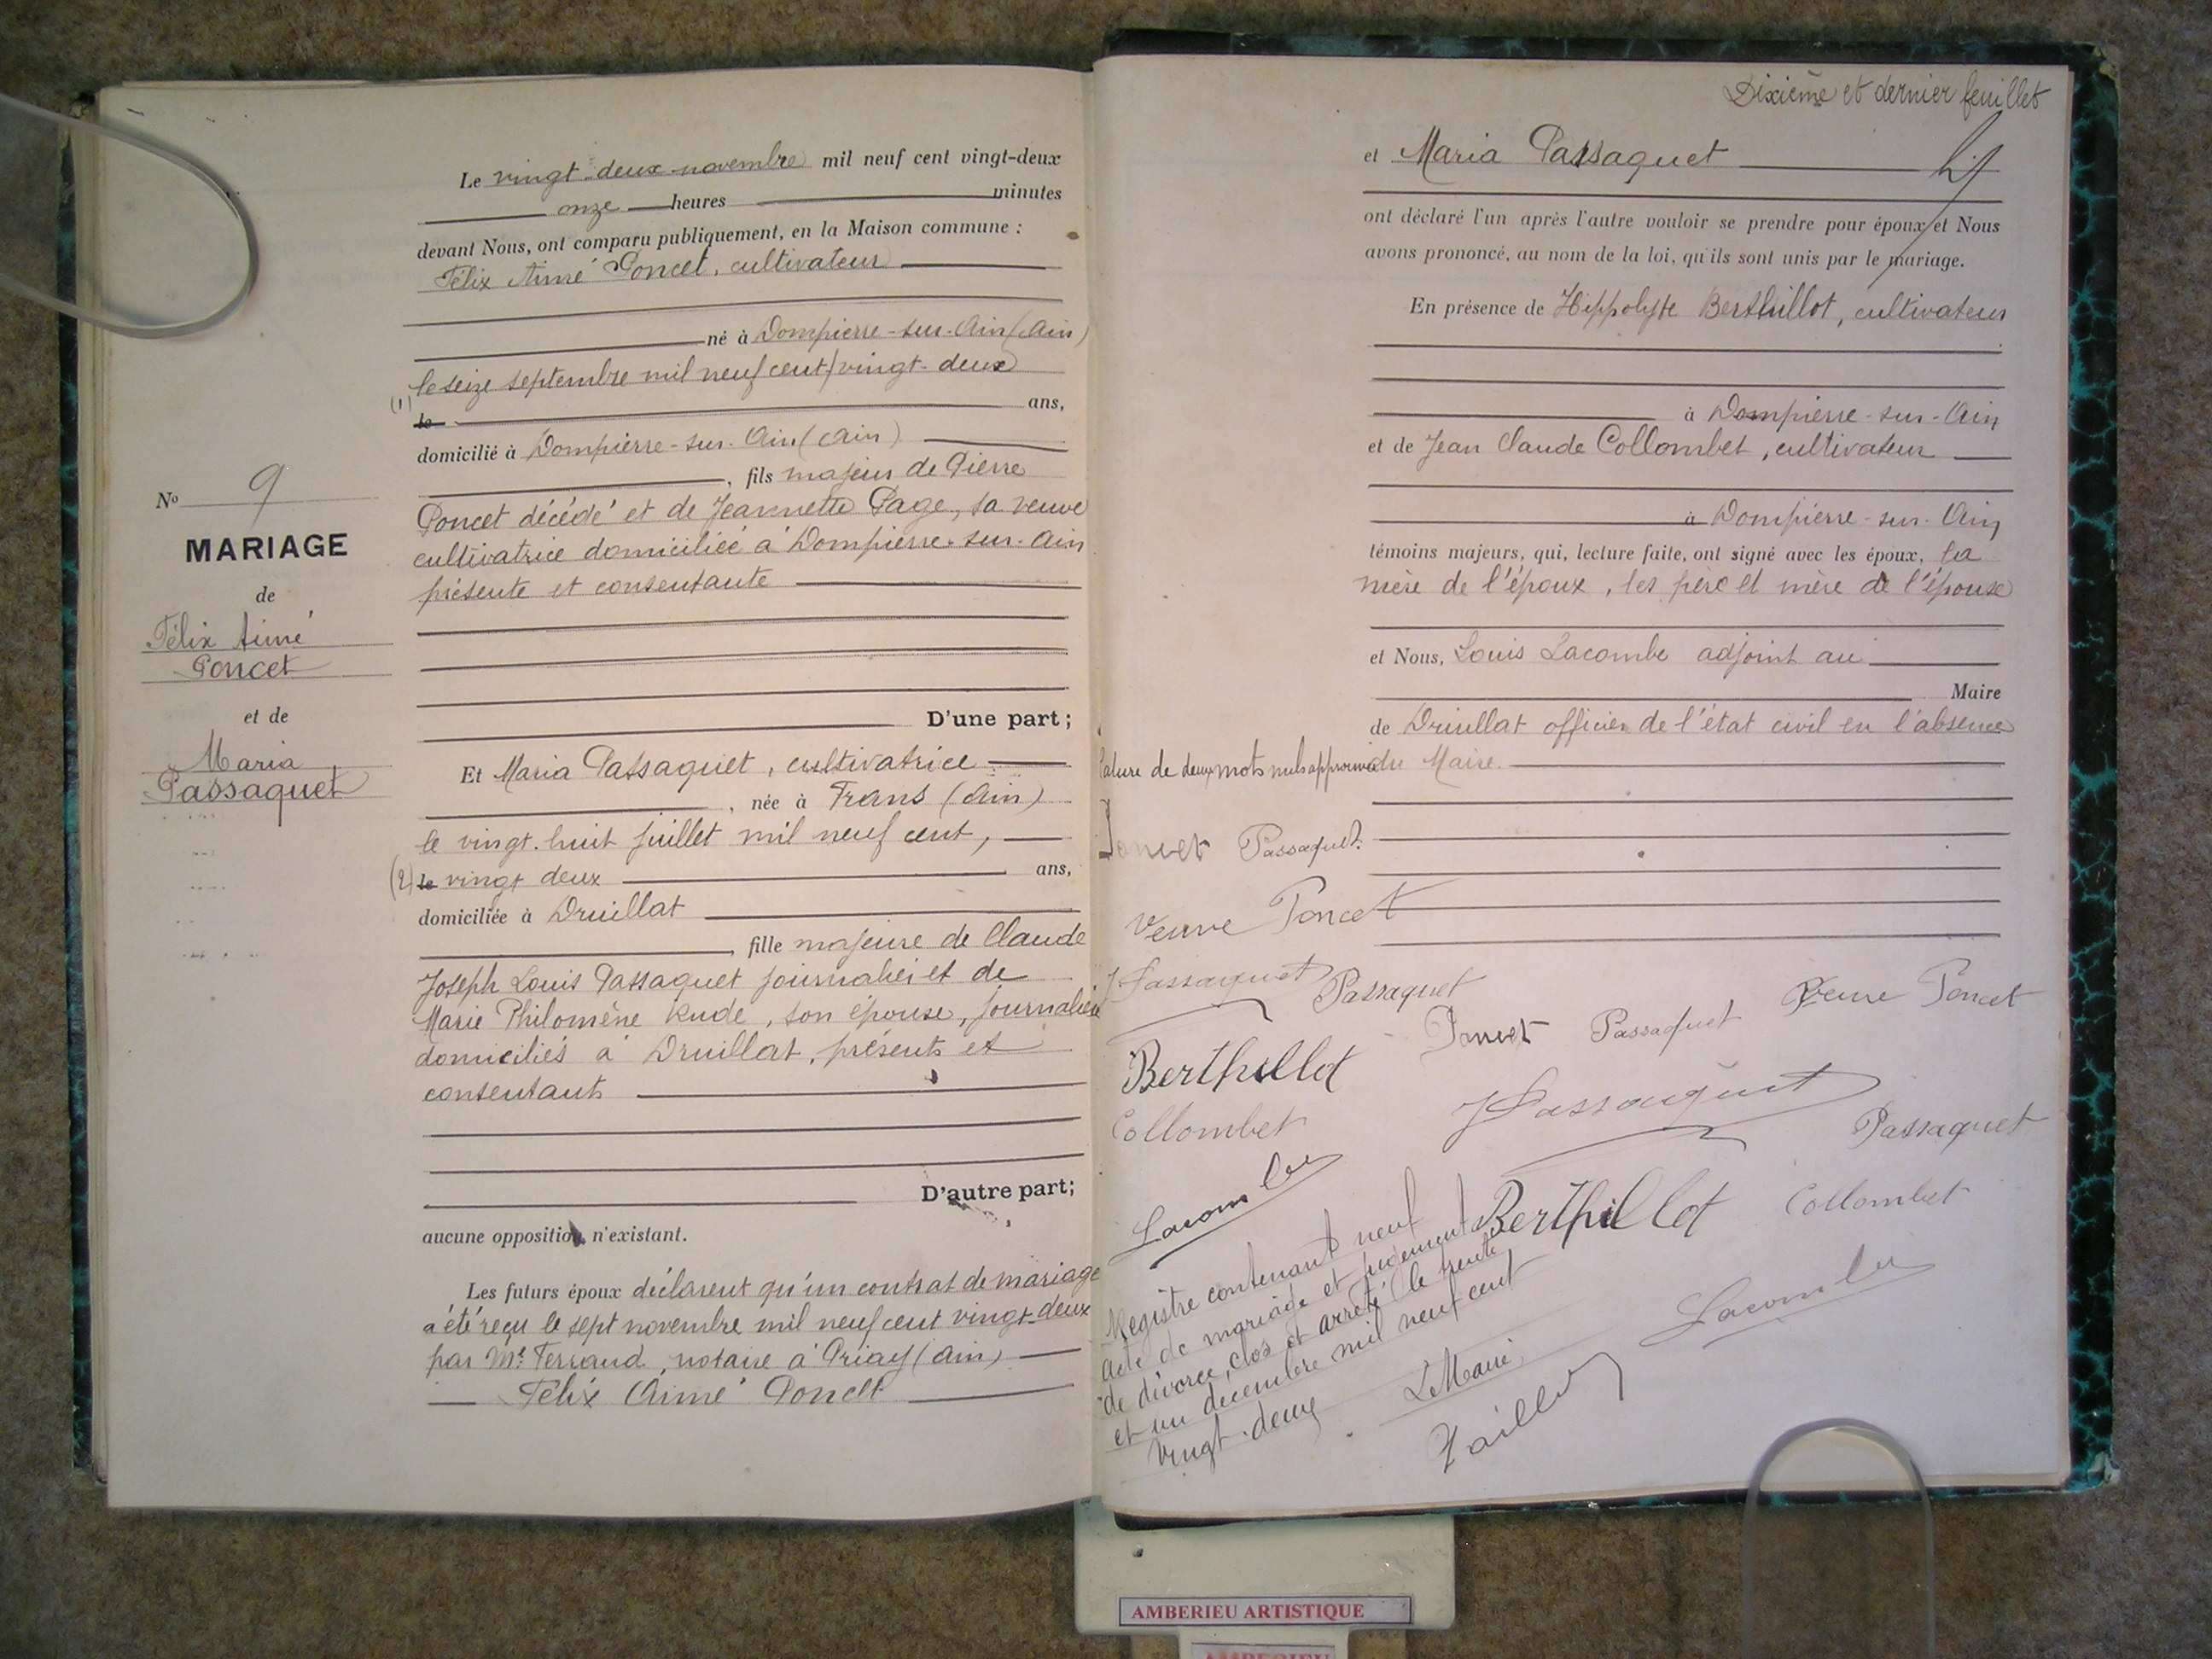 Le vingt-deux novembre mil neuf cent vingt-deux
onze heures minutes
devant Nous, ont comparu publiquement, en la Maison commune :
Félix Aimé Poncet, cultivateur
né à Dompierre-sur-Ain (Ain)
le seize septembre mil neuf cent, vingt-deux
(1) le ans,
domicilié à Dompierre-sur-Ain (Ain)
, fils majeur de Pierre
Poncet décédé et de Jeannette Page, sa veuve
cultivatrice domiciliée à Dompierre-sur-Ain
présente et consentante
D'une part ;
Et Maria Passaquet, cultivatrice
, née à Frans (Ain)
le vingt-huit juillet mil neuf cent,
(2) le vingt deux ans,
domiciliée à Druillat
, fille majeure de Claude
Joseph Louis Passaquet journalier et de
Marie Philomène Rude, son épouse, journalière
domiciliés à Druillat, présents et
consentants
D'autre part;
aucune opposition n'existant.
Les futurs époux déclarent qu'un contrat de mariage
a été reçu le sept novembre mil neuf cent vingt-deux
par Me Ferraud, notaire à Priay (Ain)
Félix Aimé Poncet
No 9
MARIAGE
de
Félix Aimé
Poncet
et de
Maria
Passaquet
Dixième et dernier feuillet
et Maria Passaquet
ont déclaré l'un après l'autre vouloir se prendre pour époux et Nous
avons prononcé, au nom de la loi, qu'ils sont unis par le mariage.
En présence de Hippolyte Berthillot, cultivateur
à Dompierre-sur-Ain
et de Jean Claude Collombet, cultivateur
à Dompierre-sur-Ain
témoins majeurs, qui, lecture faite, ont signé avec les époux, la
mère de l'époux, les père et mère de l'épouse
et Nous, Louis Lacombe adjoint au
Maire
de Druillat officier de l'état civil en l'absence
du Maire.
Rature de deux mots nuls approuvé
Poncet Passaquet
Veuve Poncet
J Passaquet Passaquet
Poncet Passaquet Veuve Poncet
Berthillot
J Passaquet
Collombet
Passaquet
Lacombe
Berthillot Collombet
Lacombe
Registre contenant neuf
acte de mariage et jugement
de divorce, clos et arrêté le trente
et un décembre mil neuf cent
vingt-deux
Le Maire,
AMBERIEU ARTISTIQUE
AMBERIEU